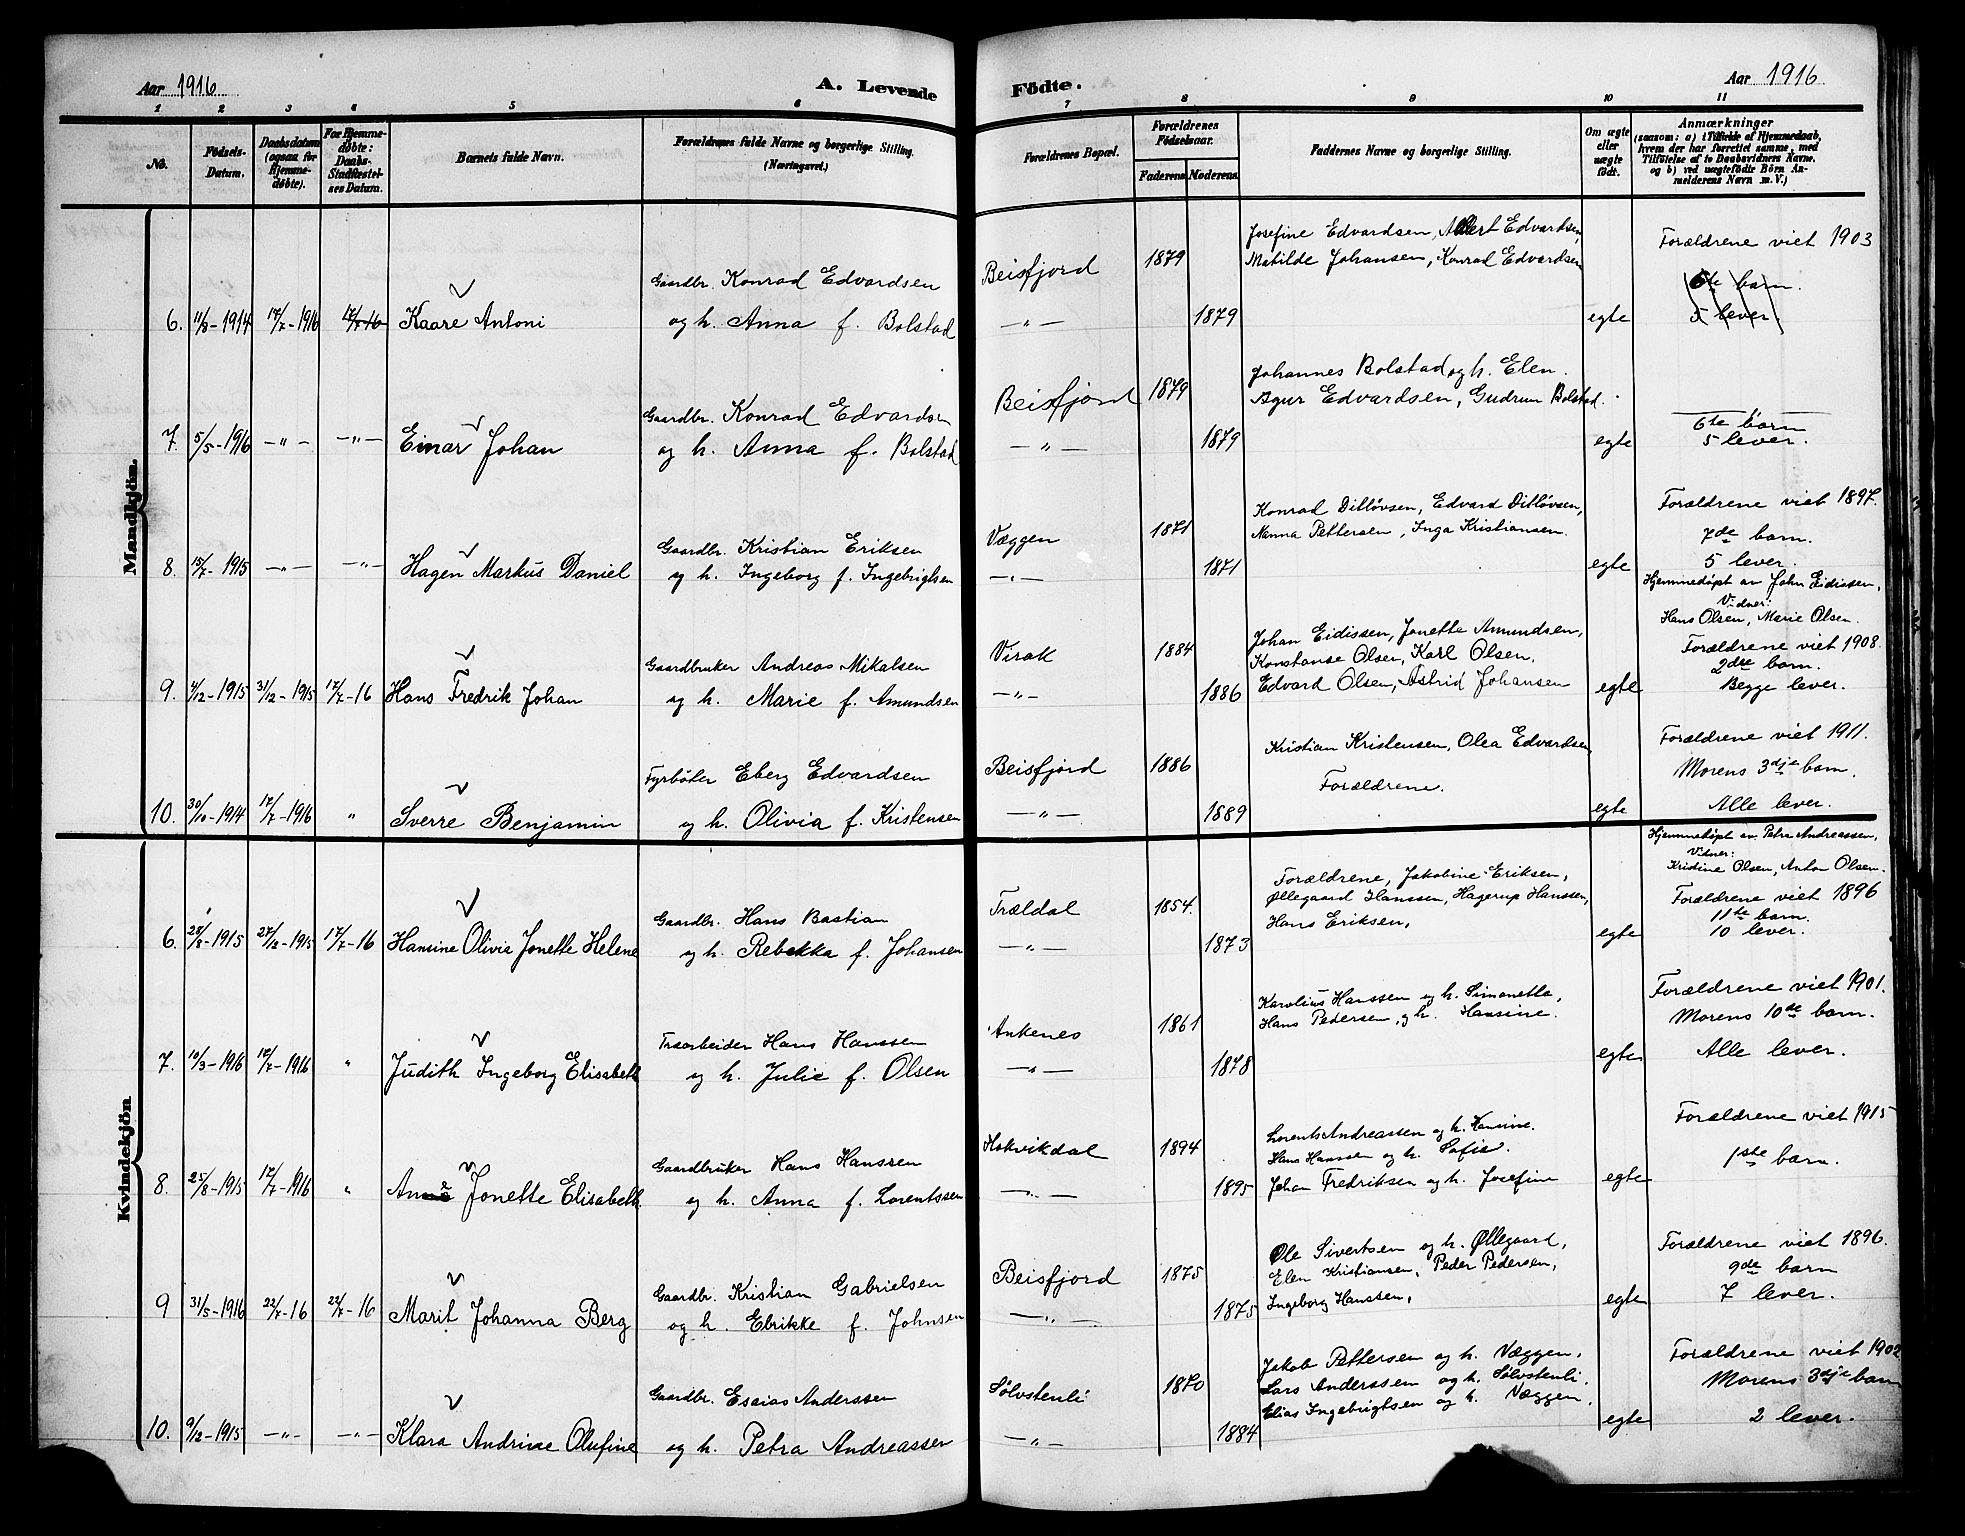 Aar 1916
A. Levende
Fødte.
Aar 1916
1 2 3 4 5 6 7 8 9 10 11
No.
Fødsels-
Datum.
Daabsdatum
(ogsaa for
Hjemme-
døbte).
For Hjemme-
døbte:
Daabs-
Stadfæstel-
ses Datum.
Barnets fulde Navn.
Forældrenes fulde Navne og borgerlige Stilling.
(Næringsvei.)
Forældrenes Bopæl.
Forældrenes
Fødselsaar.
Faderens Moderens
Faddernes Navne og borgerlige Stilling.
Om ægte
eller
uægte
født.
Anmærkninger
(saasom: a) i Tilfælde af Hjemmedaab,
hvem der har forrettet samme, med
Tilføielse af to Daabsvidners Navne,
og b) ved uægtefødte Børn An-
melderens Navn m. V.)
Mandkjøn.
6. 11/8-1914 17/7-1916 17/7-16 Kaare Antoni
Gaardbr. Konrad Edvardsen
og h. Anna f. Bolstad
Beisfjord 1879
—"— 1879
Josefine Edvardsen, Albert Edvardsen,
Matilde Johansen, Konrad Edvardsen
egte
Forældrene viet 1903
6te barn.
5 lever.
7. 5/5-1916 —"— —"— Einar Johan
Gaardbr. Konrad Edvardsen
og h. Anna f. Bolstad
Beisfjord 1879
—"— 1879
Johannes Bolstad og h. Elen.
Agur Edvardsen, Gudrun Bolstad.
egte
6te barn
5 lever.
8. 15/7-1915 —"— —"— Hagen Markus Daniel
Gaardbr. Kristian Eriksen
og h. Ingeborg f. Ingebrigtsen
Væggen 1871
—"— 1871
Konrad Ditløvsen, Edvard Ditløvsen,
Nanna Pettersen, Inga Kristiansen.
egte
Forældrene viet 1897.
7de barn.
5 lever.
9. 4/12-1915 31/12-1915 17/7-16 Hans Fredrik Johan
Gaardbruker Andreas Mikalsen
og h. Marie f. Amundsen
Virak 1884
—"— 1886
Johan Eidissen, Jonette Amundsen,
Konstanse Olsen, Karl Olsen,
Edvard Olsen, Astrid Johansen
egte
Hjemmedøpt av John Eidissen,
Vidner:
Hans Olsen, Marie Olsen.
Forældrene viet 1908.
2dre barn.
Begge lever.
10. 30/10-1914 17/7-1916 " Sverre Benjamin
Fyrbøter Eberg Edvardsen
og h. Olivia f. Kristensen
Beisfjord 1886
—"— 1889
Kristian Kristensen, Olea Edvardsen
Forældrene.
egte
Forældrene viet 1911.
Morens 3dje barn.
Alle lever.
Kvindekjøn
6. 1915 1915 17/7-16 Hansine Olivie Jonette Helene
Gaardbr. Hans Bastian
og h. Rebekka f. Johansen
Trældal 1854.
—"— 1873
Forældrene, Jakobine Eriksen,
Øllegaard Hanssen, Hagerup Hanssen,
Hans Eriksen,
egte
Hjemmedøpt av Petra Andreassen,
Vidner:
Kristine Olsen, Anton Olsen.
Forældrene viet 1896
11te barn.
10 lever.
7. 10/3-1916 17/7-1916 " Judith Ingeborg Elisabeth
Træarbeider Hans Hanssen
og h. Julie f. Olsen
Ankenes 1861
—"— 1878
Karolius Hanssen og h. Simonette,
Hans Pedersen, og h. Hansine.
egte
Forældrene viet 1901.
Morens 10de barn.
Alle lever.
8. 25/8-1915 17/7-1916 " Jonette Elisabeth.
Gaardbruker Hans Hanssen
og h. Anna f. Lorentssen
Hakvikdal 1894
—"— 1895
Lorents Andreassen og h. Hansine.
Hans Hanssen og h. Sofie.
Johan Fredriksen og h. Josefine
egte
Forældrene viet 1915
1ste barn.
9 31/5-1916 22/7-16 22/7-16 Marit Johanna Berg
Gaardbr. Kristian Gabrielsen
og h. Ebrikke f. Johnsen
Beisfjord 1875
—"— 1875
Ole Sivertsen og h. Øllegaard,
Elen Kristiansen, Peder Pedersen,
Ingeborg Hanssen,
egte
Forældrene viet 1896.
9de barn
7 lever.
10. 9/12-1915 —"— —"— Klara Andrine Olufine
Gaardbr. Esaias Anderssen
og h. Petra Andreassen
Sølvstenli 1870
—"— 1884
Jakob Pettersen og h. Væggen,
Lars Anderssen og h. Sølvstenli.
Elias Ingebrigtsen og h. Væggen,
egte
Forældrene viet 1902
Morens 3dje barn
2 lever.